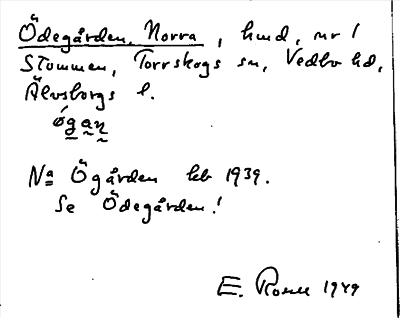 Ödegården, Norra, hmd, nr 1
Stommen, Torrskogs sn, Vedbo hd,
Älvsborgs l.
ǿgan
Na Ögården kb 1939.
Se Ödegården!
E. Rosell 1949